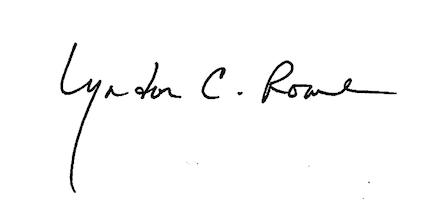 Lyndon C. Rowe